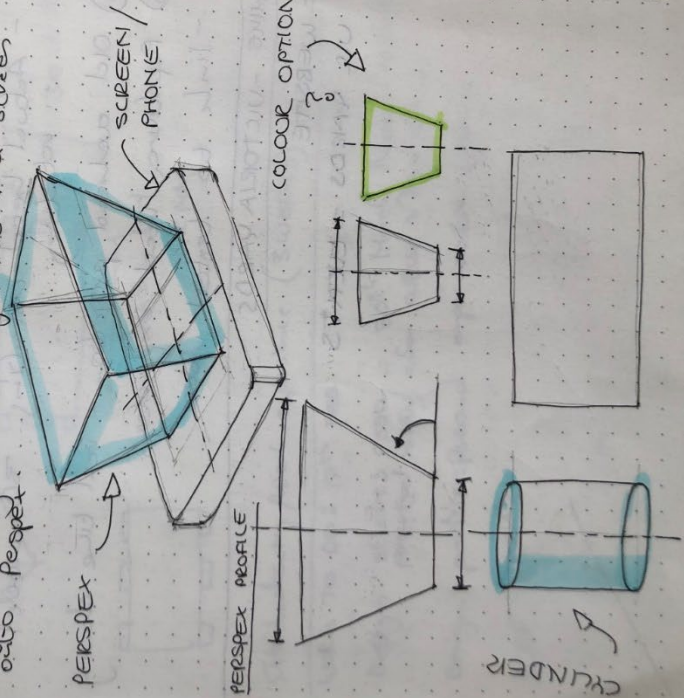 onto Perspex.
screen
SCREEN/
PHONE
PERSPEX
COLOUR OPTION
?
PERSPEX PROFILE
CYLINDER